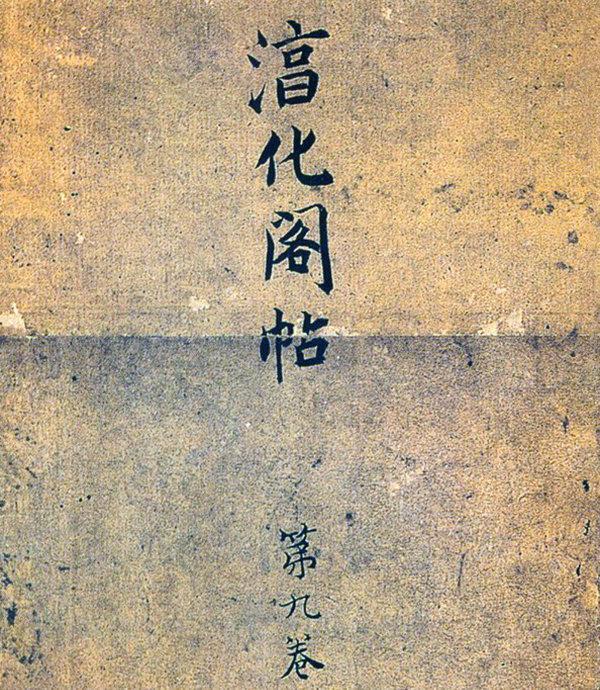 湻化阁帖
第九卷